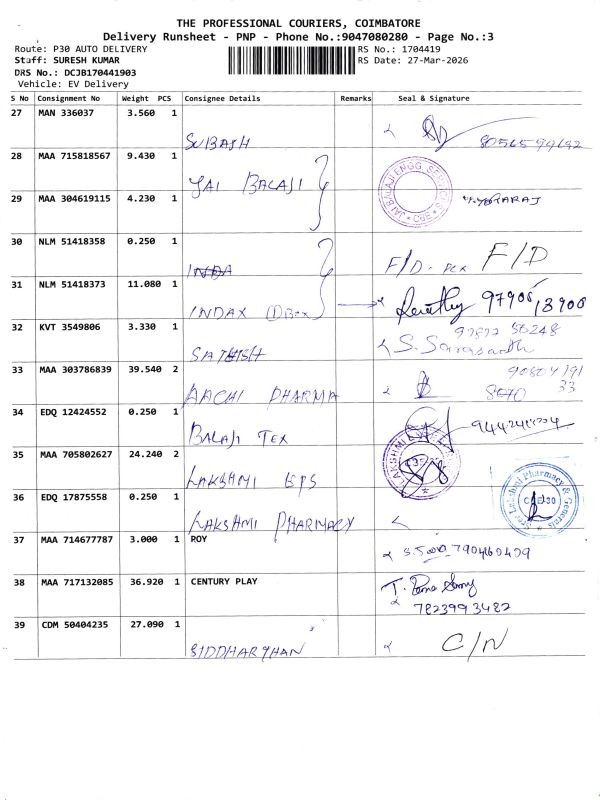 THE PROFESSIONAL COURIERS, COIMBATORE
Delivery Runsheet - PNP - Phone No.:9047080280 - Page No.:3
Route: P30 AUTO DELIVERY
RS No.: 1704419
Staff: SURESH KUMAR
RS Date: 27-Mar-2026
DRS No.: DCJB170441903
Vehicle: EV Delivery
S No Consignment No Weight PCS Consignee Details Remarks Seal & Signature
27 MAN 336037 3.560 1
SUBASH
28 MAA 715818567 9.430 1
JAI BALAJI
JAI BALAJI ENGG. SERVICES
CBE
29 MAA 304619115 4.230 1
30 NLM 51418358 0.250 1
INDA F/D F/D
31 NLM 51418373 11.080 1
INDAX 1 Box
32 KVT 3549806 3.330 1
SATHISH
33 MAA 303786839 39.540 2
AACHI PHARMA
34 EDQ 12424552 0.250 1
BALAJI TEX
35 MAA 705802627 24.240 2
LAKSHMI EPS
LAKSHMI
36 EDQ 17875558 0.250 1
LAKSHMI PHARMACY
Sree Lakshmi Pharmacy & Generals
CBE-30
37 MAA 714677787 3.000 1 ROY
38 MAA 717132085 36.920 1 CENTURY PLAY
7823993482
39 CDM 50404235 27.090 1
SIDDHARTHAN C/N